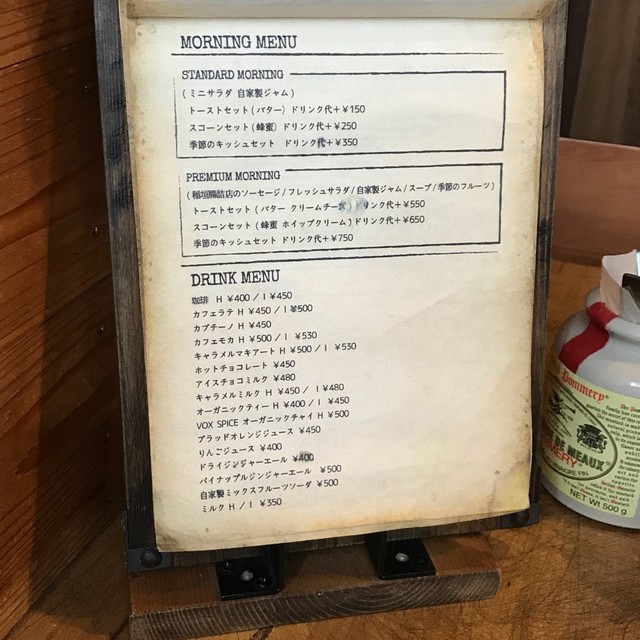 MORNING MENU
STANDARD MORNING
( ミニサラダ 自家製ジャム )
トーストセット ( バター ) ドリンク代+¥150
スコーンセット ( 蜂蜜 ) ドリンク代+¥250
季節のキッシュセット ドリンク代+¥350
PREMIUM MORNING
( 稲垣腸詰店のソーセージ / フレッシュサラダ / 自家製ジャム / スープ / 季節のフルーツ )
トーストセット ( バター クリームチーズ ) ドリンク代+¥550
スコーンセット ( 蜂蜜 ホイップクリーム ) ドリンク代+¥650
季節のキッシュセット ドリンク代+¥750
DRINK MENU
珈琲 H ¥400 / I ¥450
カフェラテ H ¥450 / I ¥500
カプチーノ H ¥450
カフェモカ H ¥500 / I ¥530
キャラメルマキアート H ¥500 / I ¥530
ホットチョコレート ¥450
アイスチョコミルク ¥480
キャラメルミルク H ¥450 / I ¥480
オーガニックティー H ¥400 / I ¥450
VOX SPICE オーガニックチャイ H ¥500
ブラッドオレンジジュース ¥450
りんごジュース ¥400
ドライジンジャーエール ¥400
パイナップルジンジャーエール ¥500
自家製ミックスフルーツソーダ ¥500
ミルク H / I ¥350
Pommery
DE MEAUX
NET Wt 500 g